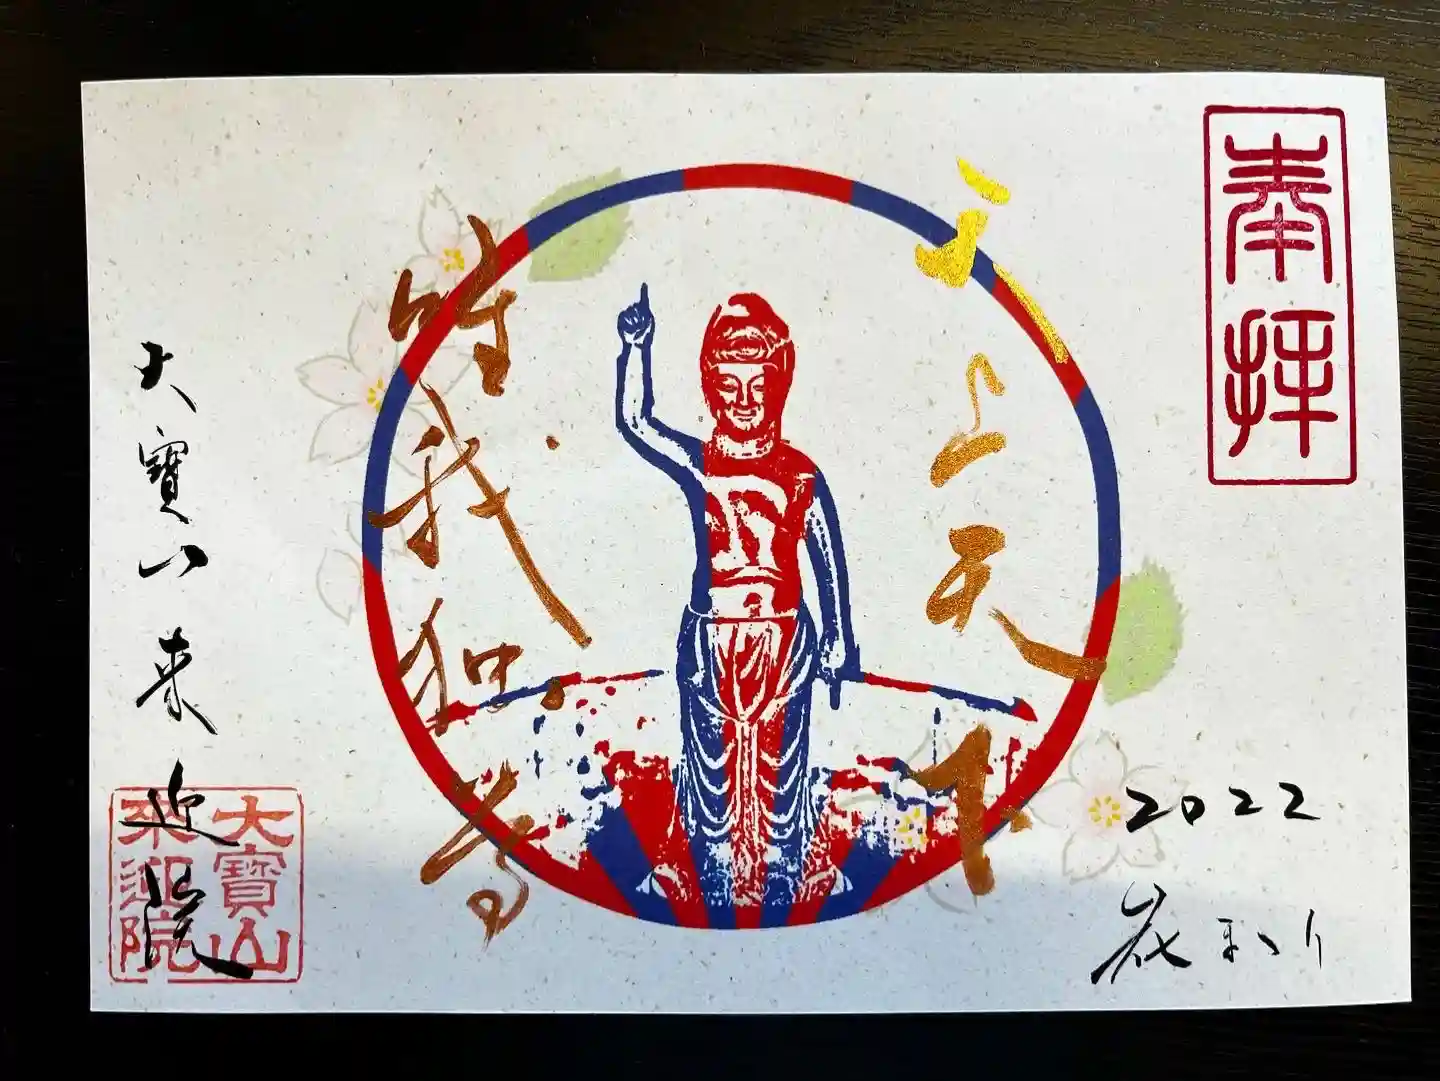 奉拝
天上天下
唯我独尊
2022
大寶山来迎院
大寶山
來迎院